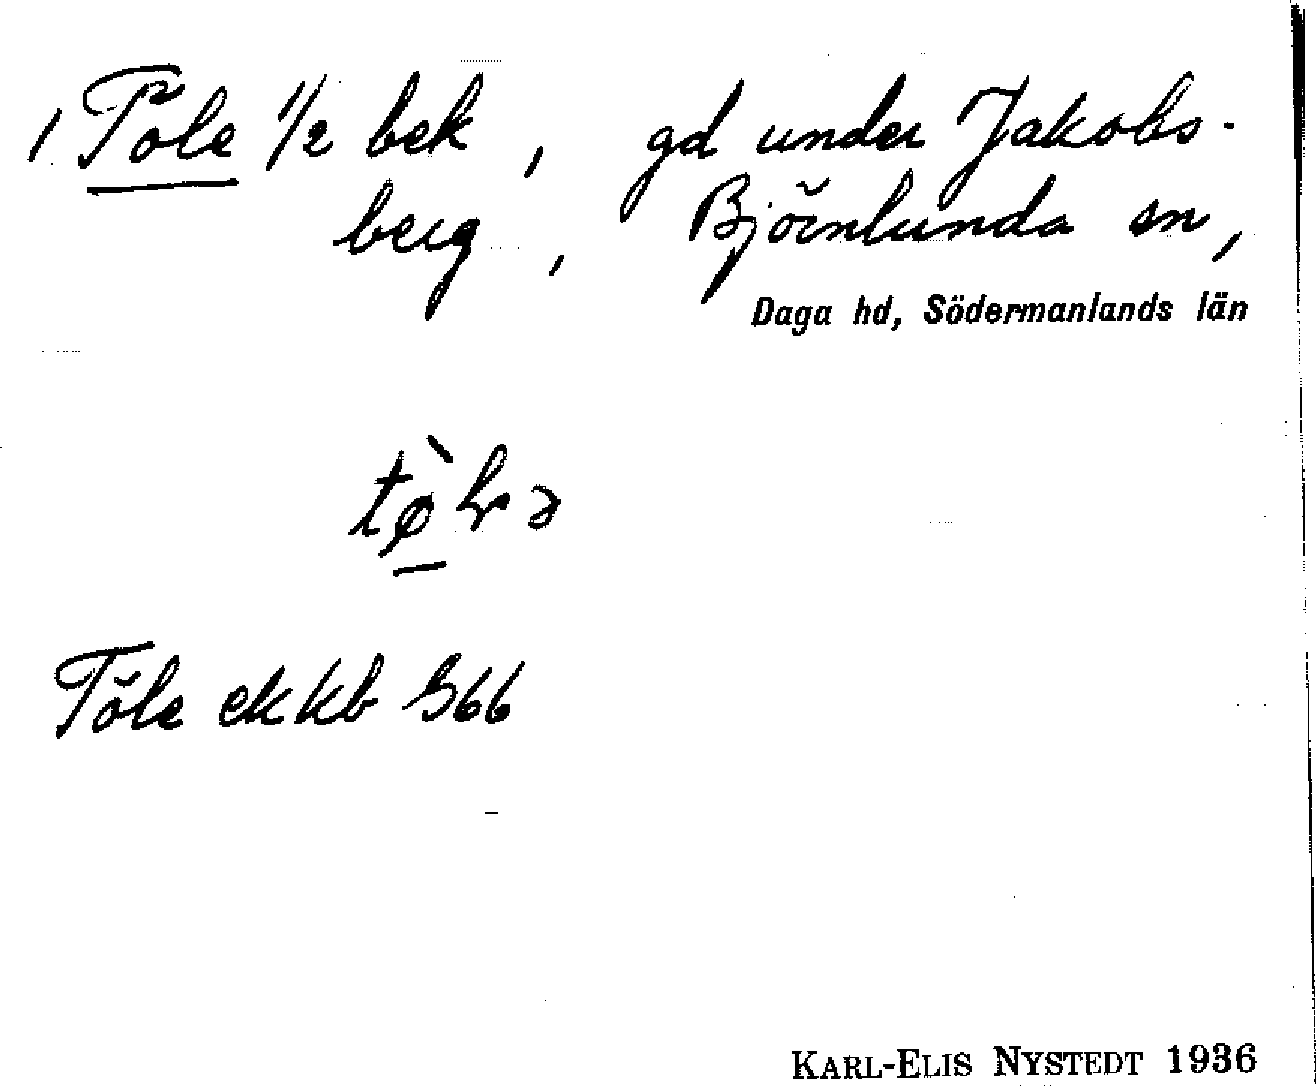 1. Töle 1/2 bek, gd under Jakobs-
berg, Björnlunda sn,
Daga hd, Södermanlands län
Töle ekkb 566
KARL-ELIS NYSTEDT 1936